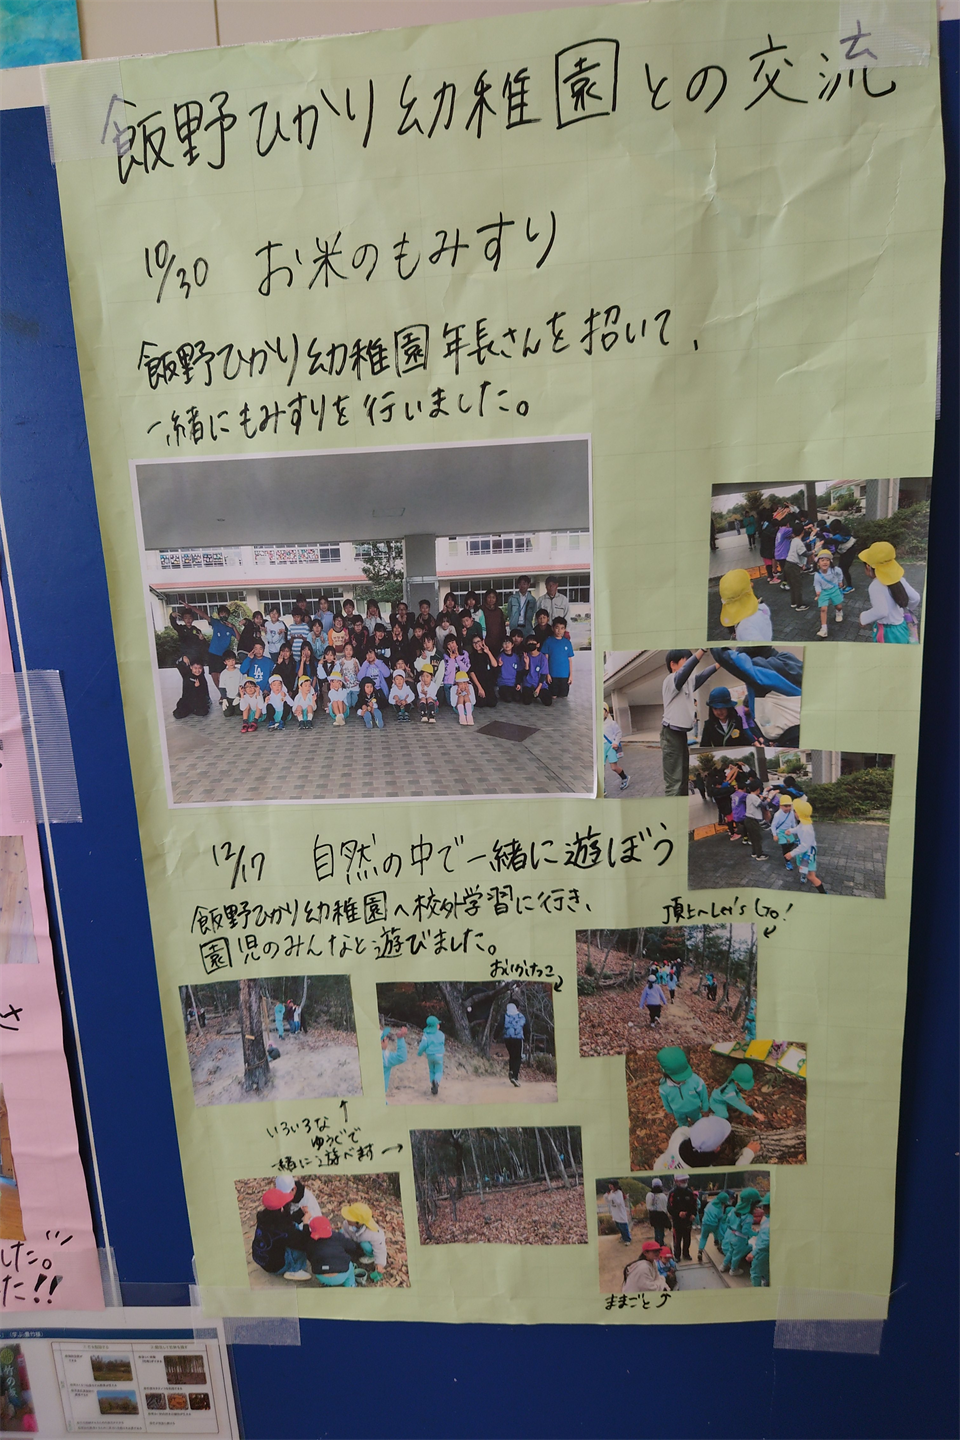 飯野ひかり幼稚園との交流
10/30 お米のもみすり
飯野ひかり幼稚園年長さんを招いて、
一緒にもみすりを行いました。
12/17 自然の中で一緒に遊ぼう
飯野ひかり幼稚園へ校外学習に行き、
園児のみんなと遊びました。
頂上へLet's Go!
おいかけっこ
いろいろな
ゆうぐで
一緒に遊べます
ままごと
した。
た!!